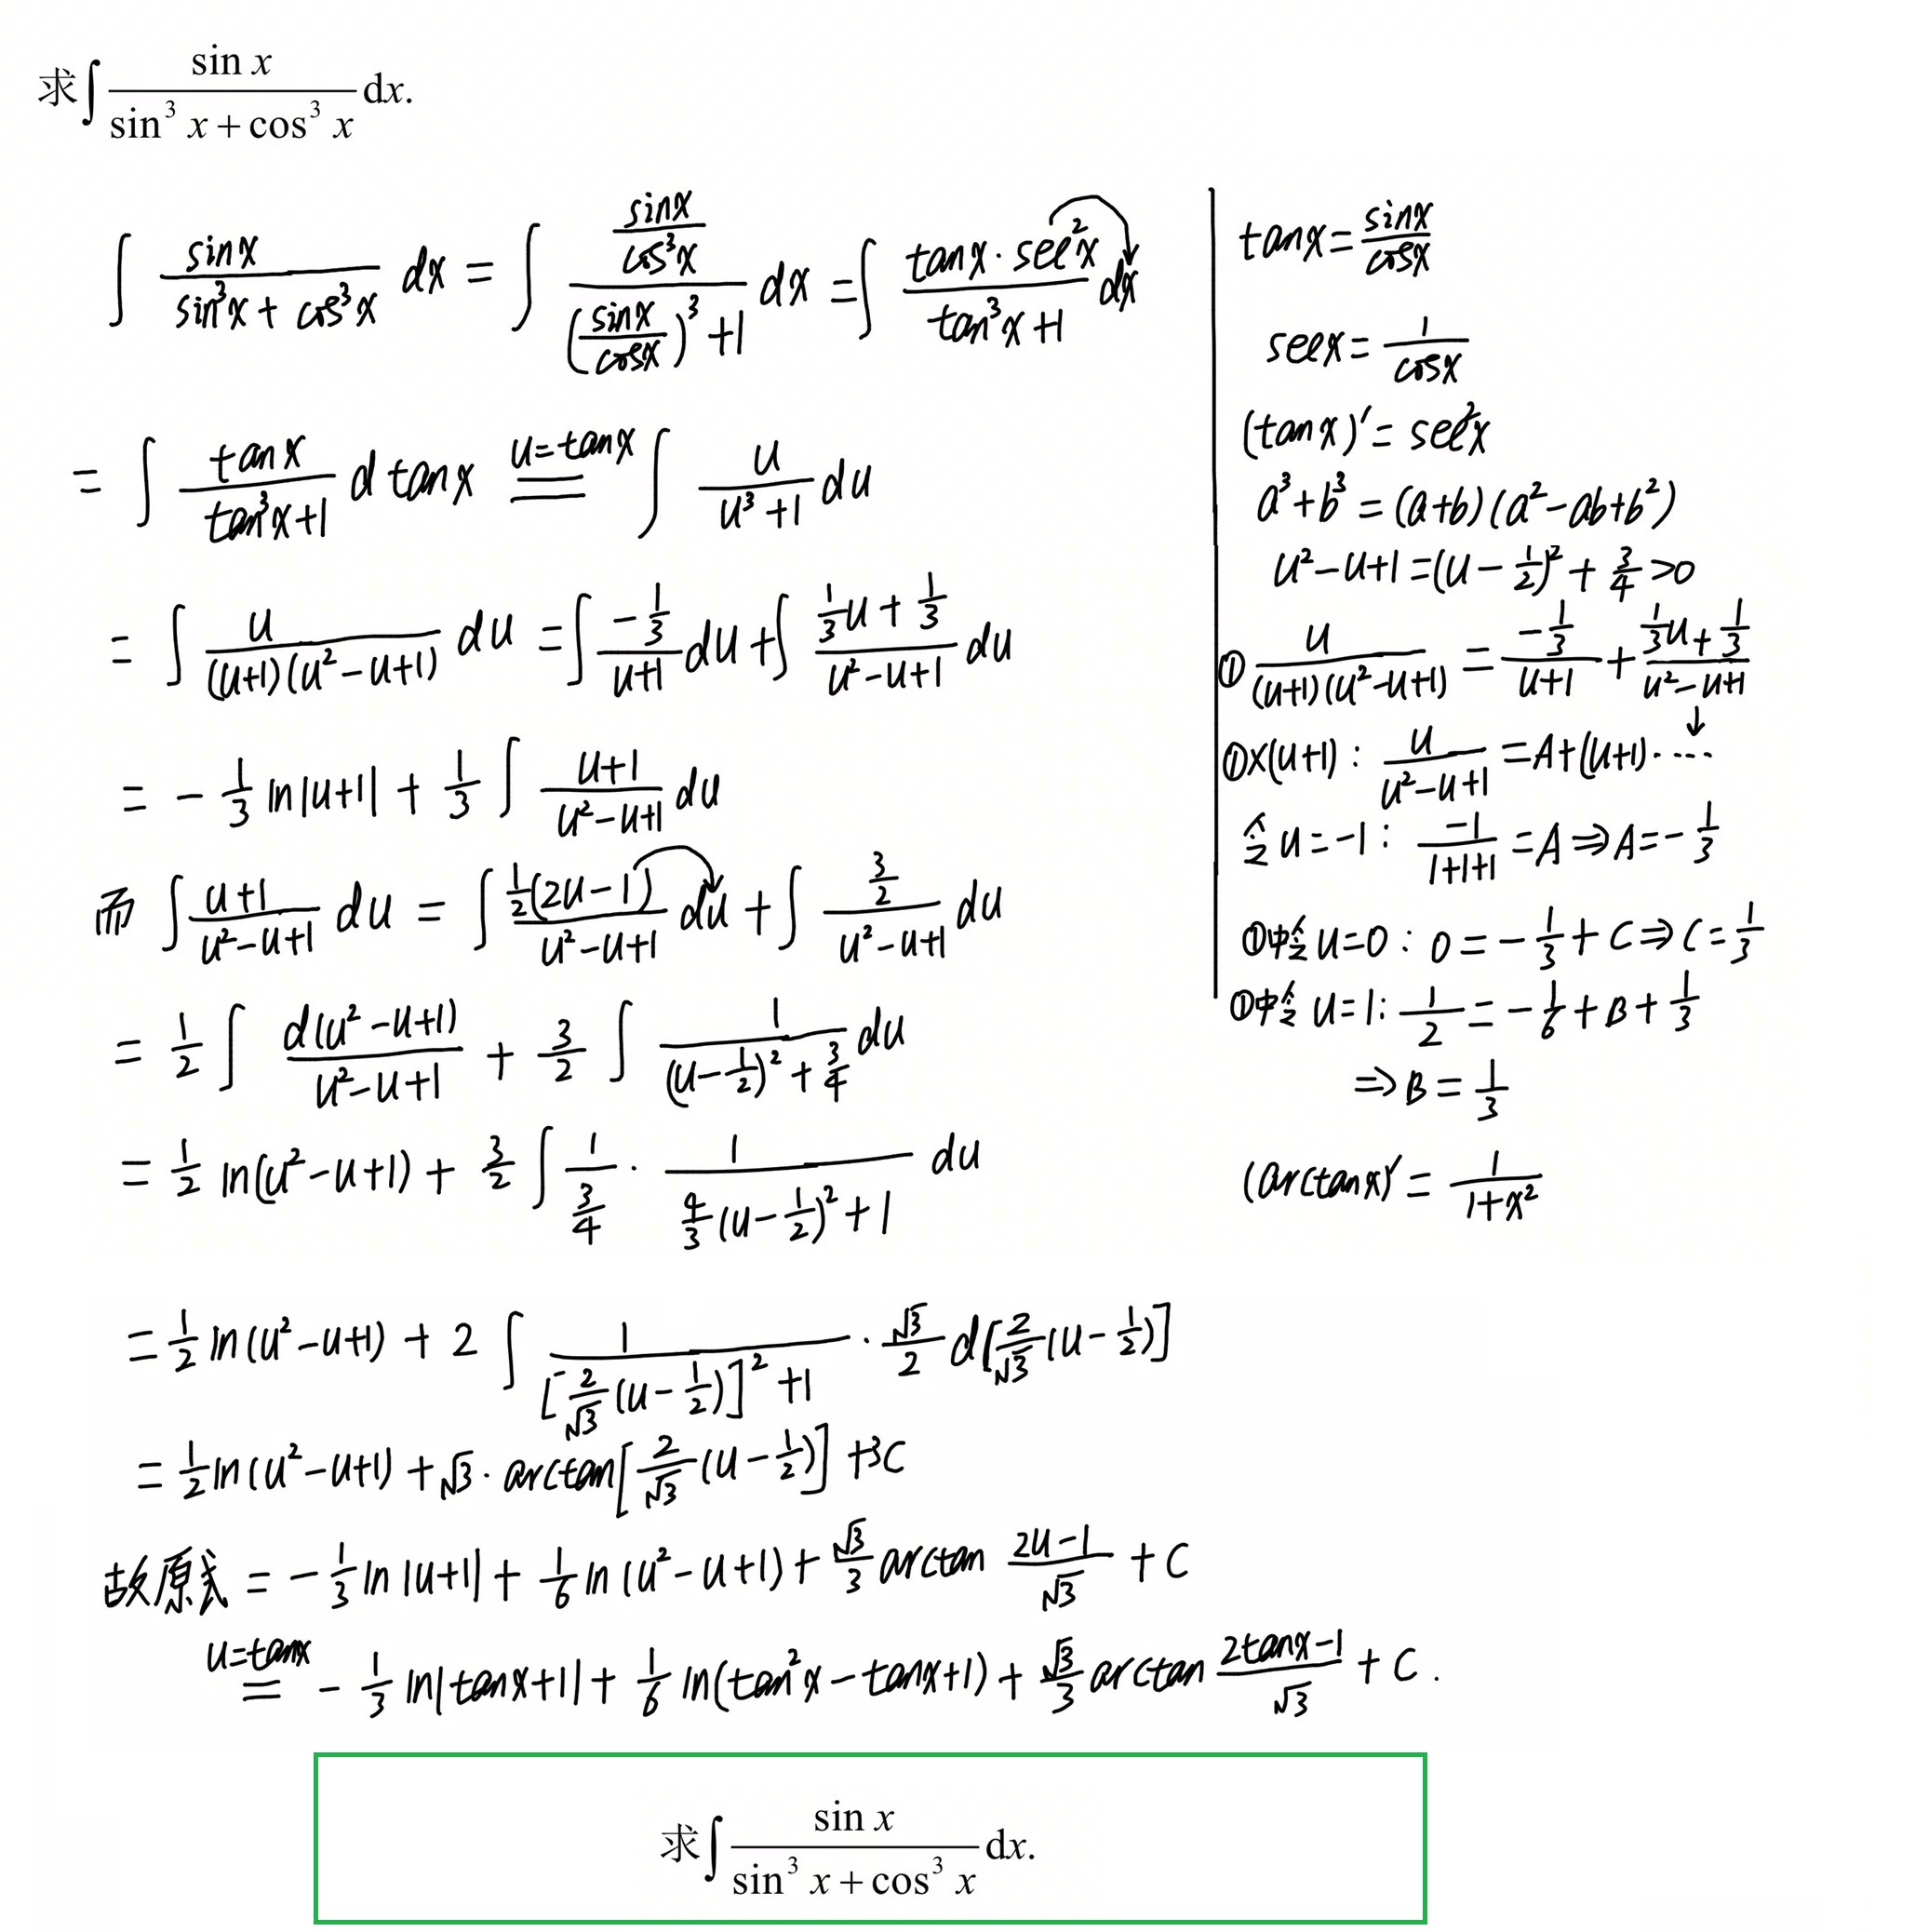 求∫ sin x / (sin³ x + cos³ x) dx.
∫ sinx / (sin³x + cos³x) dx = ∫ (sinx/cos³x) / ((sinx/cosx)³ + 1) dx = ∫ (tanx · sec²x) / (tan³x + 1) dx
= ∫ tanx / (tan³x+1) d tanx =(u=tanx)= ∫ u / (u³+1) du
= ∫ u / ((u+1)(u²-u+1)) du = ∫ (-1/3) / (u+1) du + ∫ (1/3 u + 1/3) / (u²-u+1) du
= - 1/3 ln|u+1| + 1/3 ∫ (u+1) / (u²-u+1) du
而 ∫ (u+1) / (u²-u+1) du = ∫ 1/2(2u-1) / (u²-u+1) du + ∫ (3/2) / (u²-u+1) du
= 1/2 ∫ d(u²-u+1) / (u²-u+1) + 3/2 ∫ 1 / ((u-1/2)² + 3/4) du
= 1/2 ln(u²-u+1) + 3/2 ∫ 1/(3/4) · 1 / (4/3 (u-1/2)² + 1) du
= 1/2 ln(u²-u+1) + 2 ∫ 1 / ([2/√3 (u-1/2)]² + 1) · √3/2 d[2/√3 (u-1/2)]
= 1/2 ln(u²-u+1) + √3 · arctan[2/√3 (u-1/2)] + 3C
故原式 = - 1/3 ln|u+1| + 1/6 ln(u²-u+1) + √3/3 arctan (2u-1)/√3 + C
=(u=tanx)= - 1/3 ln|tanx+1| + 1/6 ln(tan²x - tanx+1) + √3/3 arctan (2tanx-1)/√3 + C.
tanx = sinx/cosx
secx = 1/cosx
(tanx)' = sec²x
a³+b³ = (a+b)(a²-ab+b²)
u²-u+1 = (u-1/2)² + 3/4 >0
① u / ((u+1)(u²-u+1)) = (-1/3) / (u+1) + (1/3 u + 1/3) / (u²-u+1)
↓
①×(u+1): u / (u²-u+1) = A+(u+1)·…
令u=-1: -1 / (1+1+1) = A ⇒ A = - 1/3
①中令u=0: 0 = - 1/3 + C ⇒ C = 1/3
①中令u=1: 1/2 = - 1/6 + B + 1/3
⇒ B = 1/3
(arctanx)' = 1 / (1+x²)
求∫ sin x / (sin³ x + cos³ x) dx.